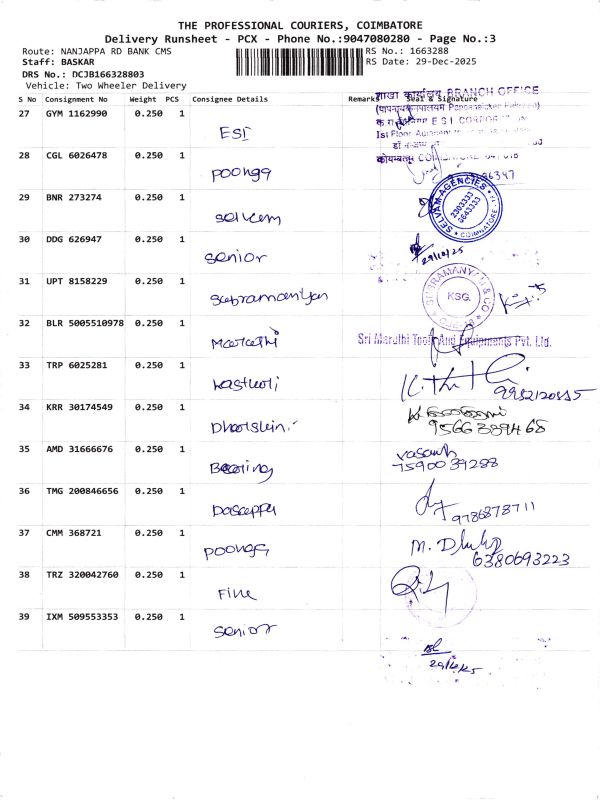 THE PROFESSIONAL COURIERS, COIMBATORE
Delivery Runsheet - PCX - Phone No.:9047080280 - Page No.:3
Route: NANJAPPA RD BANK CMS RS No.: 1663288
Staff: BASKAR RS Date: 29-Dec-2025
DRS No.: DCJB166328803
Vehicle: Two Wheeler Delivery
S No Consignment No Weight PCS Consignee Details Remarks Seal & Signature
शाखा कार्यालय BRANCH OFFICE
27 GYM 1162990 0.250 1 ESI
28 CGL 6026478 0.250 1 poongg
29 BNR 273274 0.250 1 selvam SELVAM AGENCIES COIMBATORE 2303333 6643333
30 DDG 626947 0.250 1 senior 29/12/25
31 UPT 8158229 0.250 1 subramaniyan SUBRAMANYAM & CO KSG.
32 BLR 5005510978 0.250 1 Maruthi Sri Maruthi Tools And Equipments Pvt. Ltd.
33 TRP 6025281 0.250 1 kasthuri
34 KRR 30174549 0.250 1
35 AMD 31666676 0.250 1 Bearing vasanth 7590039288
36 TMG 200846656 0.250 1 Dasappa 9786878711
37 CMM 368721 0.250 1 poongg M. Dhulip 6380693223
38 TRZ 320042760 0.250 1 Fine
39 IXM 509553353 0.250 1 senior
29/12/25